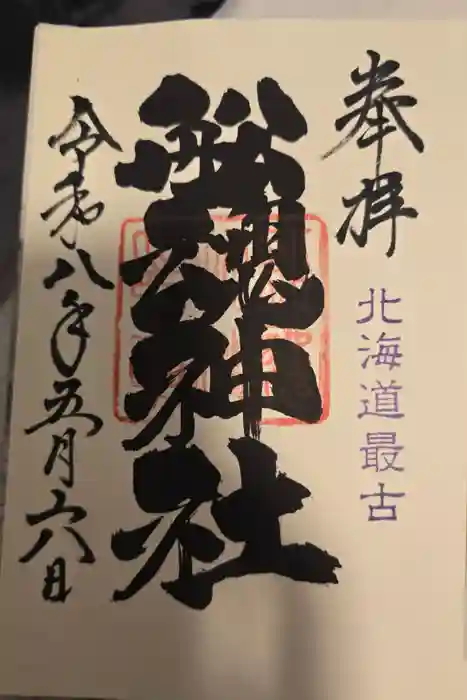 奉拝
北海道最古
船魂神社
令和八年五月六日